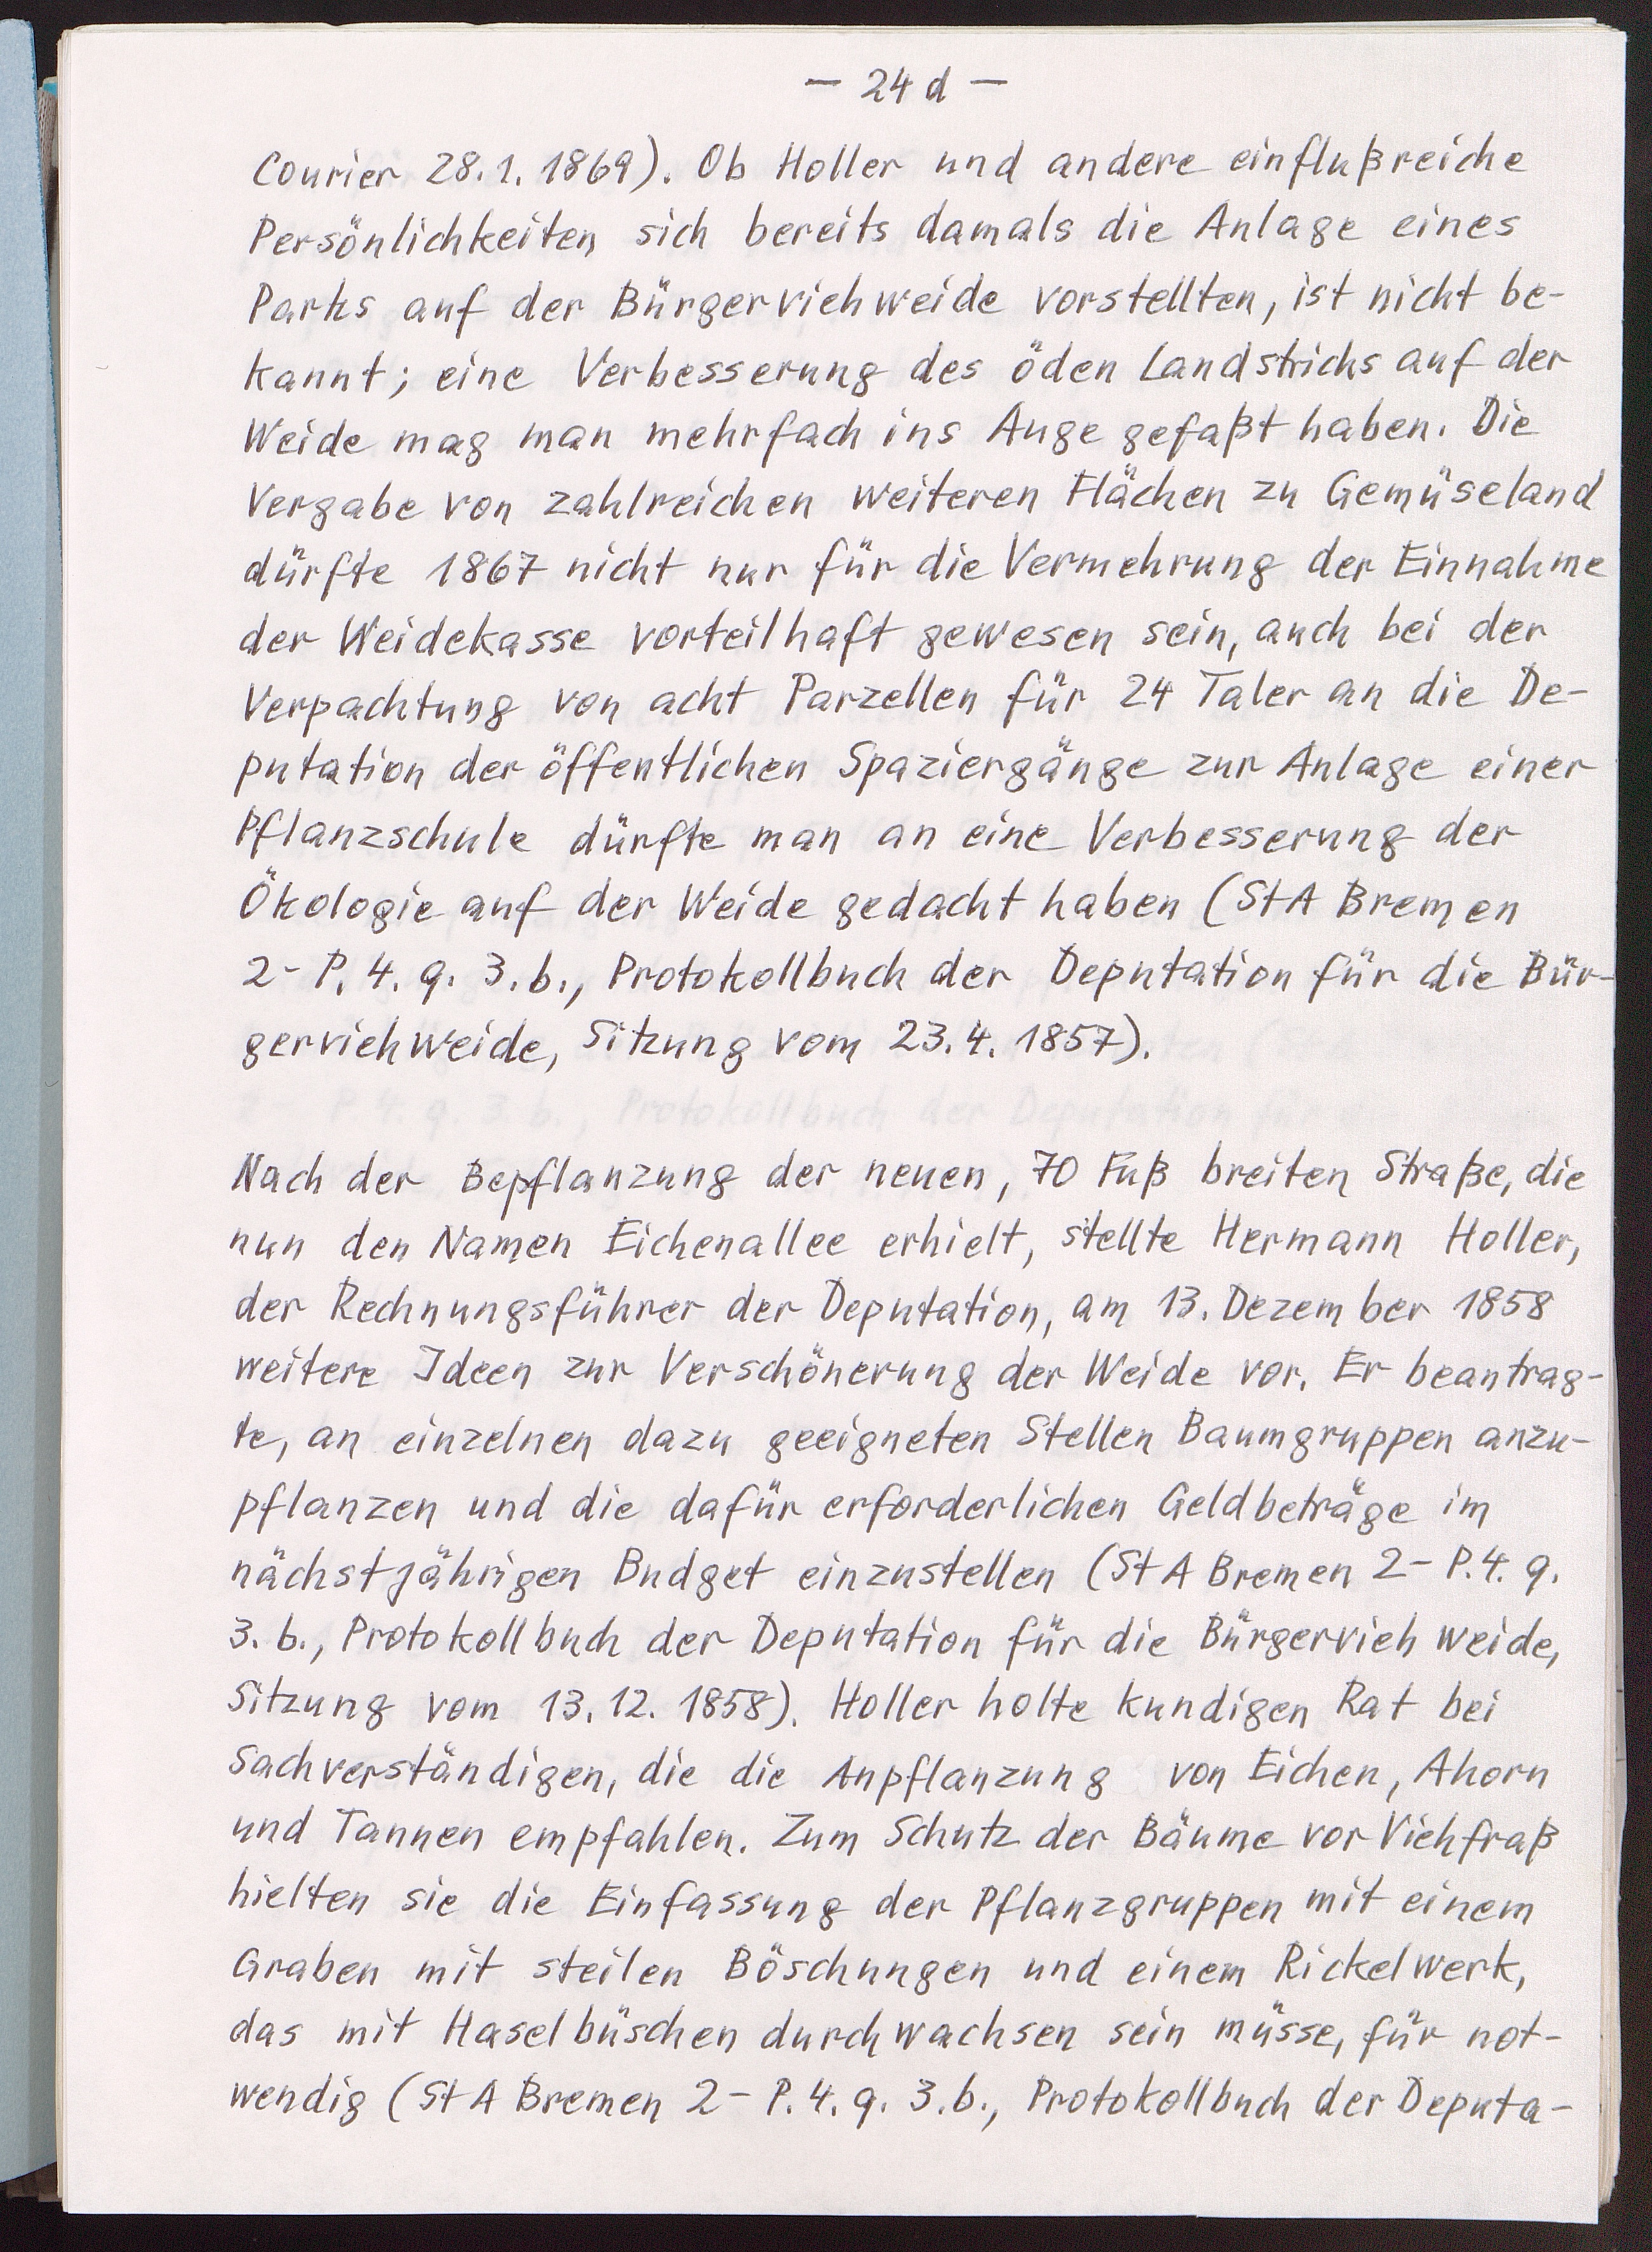 — 24 d —
Courier 28.1.1869). Ob Holler und andere einflußreiche
Persönlichkeiten sich bereits damals die Anlage eines
Parks auf der Bürgerviehweide vorstellten, ist nicht be-
kannt; eine Verbesserung des öden Landstrichs auf der
Weide mag man mehrfach ins Auge gefaßt haben. Die
Vergabe von zahlreichen weiteren Flächen zu Gemüseland
dürfte 1867 nicht nur für die Vermehrung der Einnahme
der Weidekasse vorteilhaft gewesen sein, auch bei der
Verpachtung von acht Parzellen für 24 Taler an die De-
putation der öffentlichen Spaziergänge zur Anlage einer
Pflanzschule dürfte man an eine Verbesserung der
Ökologie auf der Weide gedacht haben (StA Bremen
2-P. 4. q. 3. b., Protokollbuch der Deputation für die Bür-
gerviehweide, Sitzung vom 23.4.1857).
Nach der Bepflanzung der neuen, 70 Fuß breiten Straße, die
nun den Namen Eichenallee erhielt, stellte Hermann Holler,
der Rechnungsführer der Deputation, am 13. Dezember 1858
weitere Ideen zur Verschönerung der Weide vor. Er beantrag-
te, an einzelnen dazu geeigneten Stellen Baumgruppen anzu-
pflanzen und die dafür erforderlichen Geldbeträge im
nächstjährigen Budget einzustellen (StA Bremen 2-P.4. q.
3. b., Protokollbuch der Deputation für die Bürgerviehweide,
Sitzung vom 13.12.1858). Holler holte kundigen Rat bei
Sachverständigen, die die Anpflanzung von Eichen, Ahorn
und Tannen empfahlen. Zum Schutz der Bäume vor Viehfraß
hielten sie die Einfassung der Pflanzgruppen mit einem
Graben mit steilen Böschungen und einem Rickelwerk,
das mit Haselbüschen durchwachsen sein müsse, für not-
wendig (StA Bremen 2-P.4. q. 3.b., Protokollbuch der Deputa-